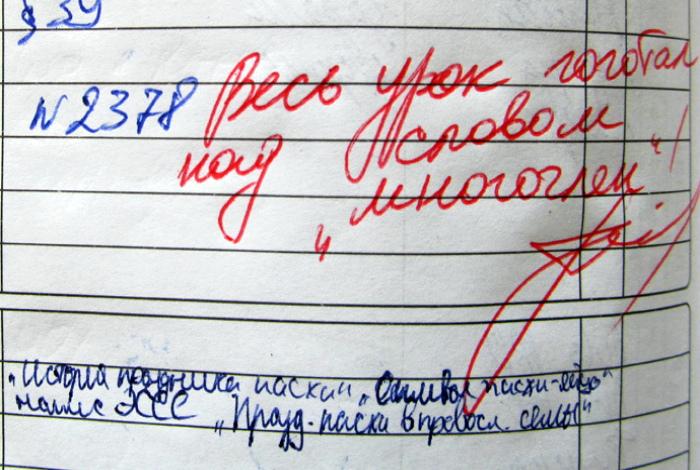 § 39
№ 2378 Весь урок гоготал
над словом
„многочлен"!
„История праздника пасхи" „Символ пасхи-яйцо"
„Празд. пасхи в правосл. семье"